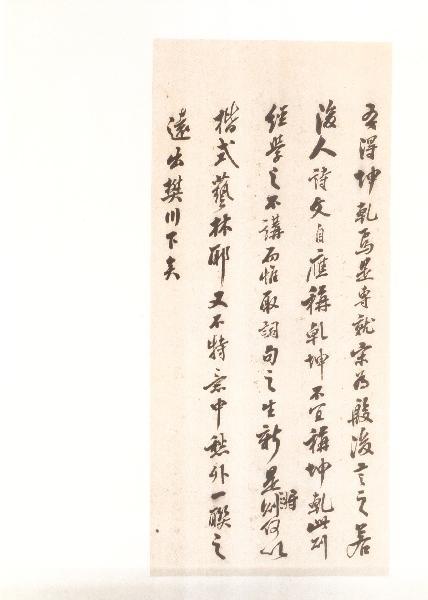 吾得坤乾焉是專就宋為殷後言之若
後人詩文自應稱乾坤不宜稱坤乾此則
經學之不講而惟取詞句之生新是則將何以
楷式藝林耶又不特意中愁外一聯之
遠出樊川下矣